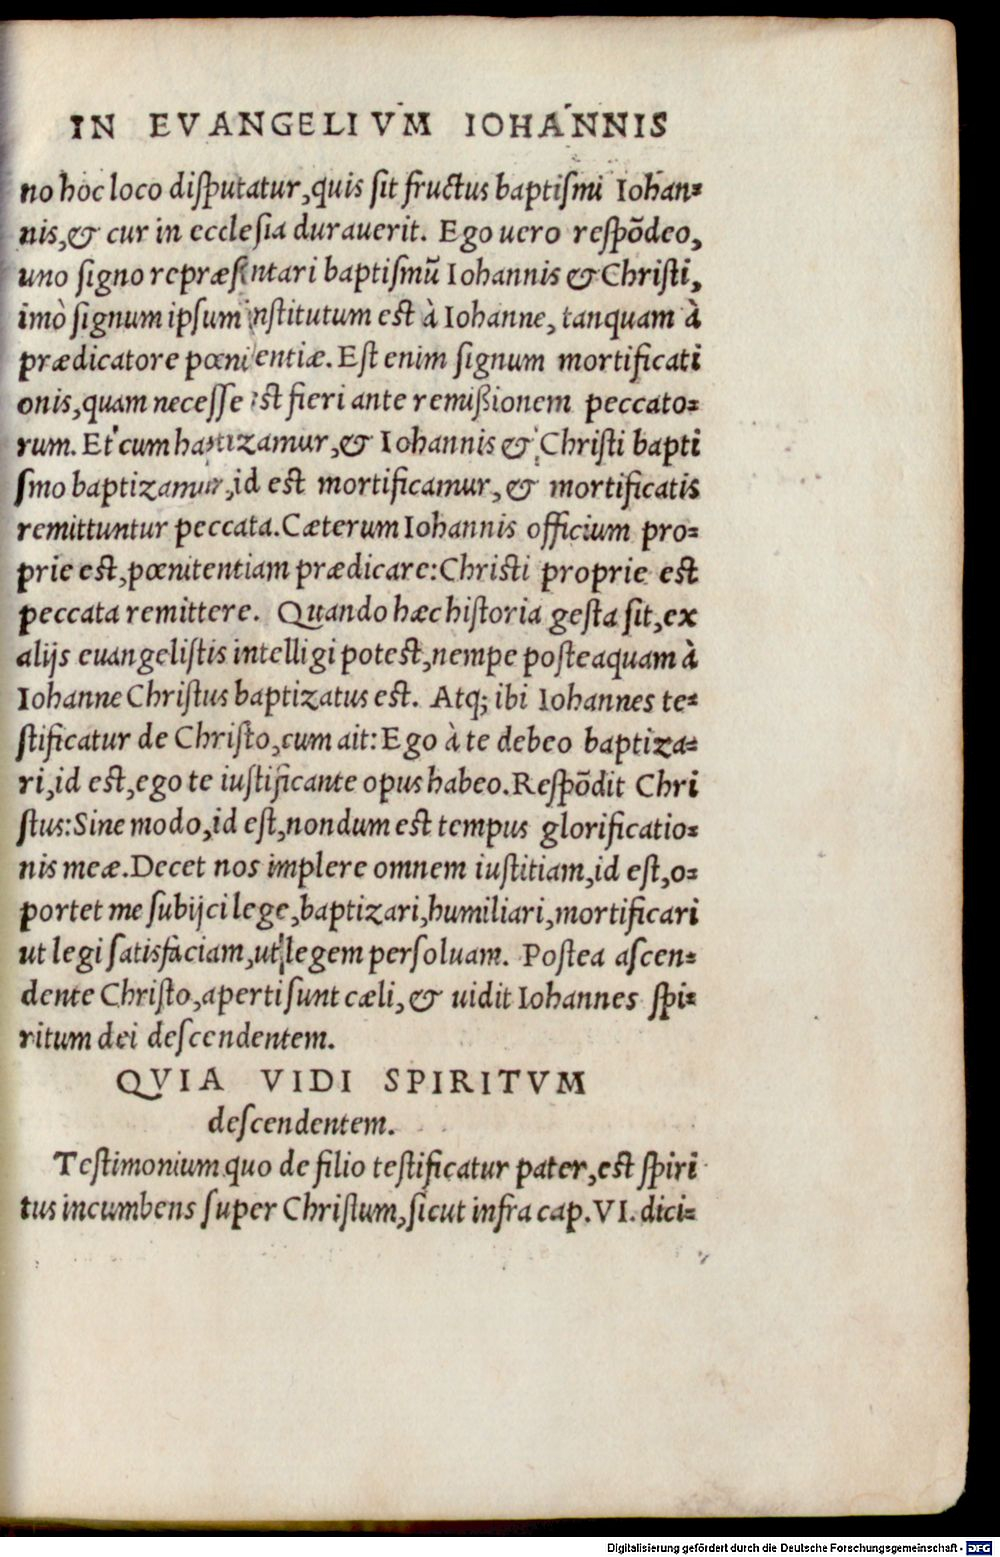 IN EVANGELIVM IOHANNIS
no hoc loco disputatur, quis sit fructus baptismi Iohan-
nis, & cur in ecclesia durauerit. Ego uero respõdeo,
uno signo repræsentari baptismũ Iohannis & Christi,
imò signum ipsum institutum est à Iohanne, tanquam à
prædicatore pœnitentiæ. Est enim signum mortificati
onis, quam necesse est fieri ante remißionem peccato-
rum. Et cum baptizamur, & Iohannis & Christi bapti
smo baptizamur, id est mortificamur, & mortificatis
remittuntur peccata. Cæterum Iohannis officium pro-
prie est, pœnitentiam prædicare: Christi proprie est
peccata remittere. Quando hæc historia gesta sit, ex
alijs euangelistis intelligi potest, nempe posteaquam à
Iohanne Christus baptizatus est. Atq; ibi Iohannes te-
stificatur de Christo, cum ait: Ego à te debeo baptiza-
ri, id est, ego te iustificante opus habeo. Respõdit Chri
stus: Sine modo, id est, nondum est tempus glorificatio-
nis meæ. Decet nos implere omnem iustitiam, id est, o-
portet me subijci lege, baptizari, humiliari, mortificari
ut legi satisfaciam, ut legem persoluam. Postea ascen-
dente Christo, aperti sunt cæli, & uidit Iohannes spi-
ritum dei descendentem.
QVIA VIDI SPIRITVM
descendentem.
Testimonium quo de filio testificatur pater, est spiri
tus incumbens super Christum, sicut infra cap. VI. dici-
Digitalisierung gefördert durch die Deutsche Forschungsgemeinschaft - DFG